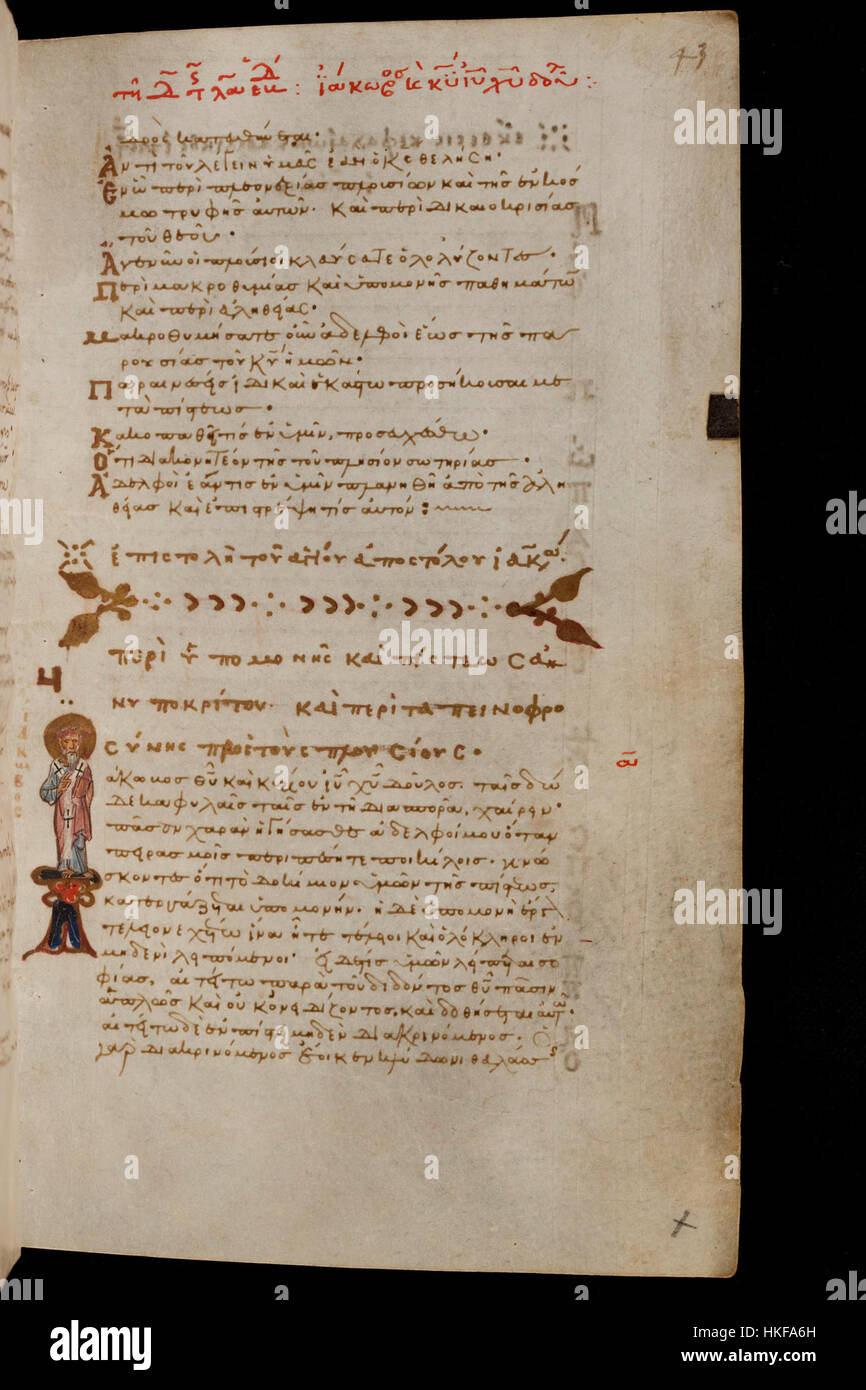 43
τῇ Δ τ λς ἑβδ : ἰάκωβος θῦ κ(αὶ) κῦ ἰῦ χῦ δοῦλ :
πρὸς κατευθύνεται·
Ἀντὶ τοῦ λέγειν ὑμᾶς ἐὰν ὁ κς θελήσῃ·
Ἐν ᾧ περὶ πλεονεξίας πλουσίων καὶ τῆς ἐν κόσ
μω τρυφῆς αὐτῶν. καὶ περὶ δικαιοκρισίας
τοῦ θεοῦ·
Ἄγε νῦν οἱ πλούσιοι κλαύσατε ὀλολύζοντες·
Περὶ μακροθυμίας καὶ ὑπομονῆς παθημάτων
καὶ περὶ ἀληθείας·
Μακροθυμήσατε οὖν ἀδελφοὶ ἕως τῆς πα
ρουσίας τοῦ κῦ ἡμῶν·
Παραινέσεις ἰδικαὶ ἑκάστω προσήκουσαι με
τὰ πίστεως·
Κακοπαθεῖ τίς ἐν ὑμῖν, προσευχέσθω·
Ὅτι διακονητέον τῆς τοῦ πλησίον σωτηρίας·
Ἀδελφοὶ ἐάν τις ἐν ὑμῖν πλανηθῇ ἀπὸ τῆς ἀλη
θείας καὶ ἐπιστρέψῃ τίς αὐτόν :
ἐπιστολὴ τοῦ ἁγίου ἀποστόλου ἰακώβου·
περὶ ὑπομονῆς καὶ πίστεως ἀ
νυποκρίτου· καὶ περὶ ταπεινοφρο
σύνης πρὸς τοὺς πλουσίους·
ἰάκωβος
ᾱ
άκωβος θῦ καὶ κυρίου ἰῦ χῦ δοῦλος. ταῖς δώ
δεκα φυλαῖς ταῖς ἐν τῇ διασπορᾶ, χαίρειν·
πᾶσαν χαρὰν ἡγήσασθε ἀδελφοί μου ὅταν
πειρασμοῖς περιπέσητε ποικίλοις. γινώ
σκοντες ὅτι τὸ δοκίμιον ὑμῶν τῆς πίστεως,
κατεργάζεται ὑπομονήν. ἡ δὲ ὑπομονὴ ἔργον
τέλειον ἐχέτω ἵνα ἦτε τέλειοι καὶ ὁλόκληροι ἐν
μηδενὶ λειπόμενοι. εἰ δέ τις ὑμῶν λείπεται σο
φίας, αἰτείτω παρὰ τοῦ διδόντος θῦ πᾶσιν
ἁπλῶς καὶ οὐκ ὀνειδίζοντος, καὶ δοθήσεται αὐτῶ·
αἰτείτω δὲ ἐν πίστει μηδὲν διακρινόμενος. Ὁ
γὰρ διακρινόμενος ἔοικεν κλύδωνι θαλάσσης